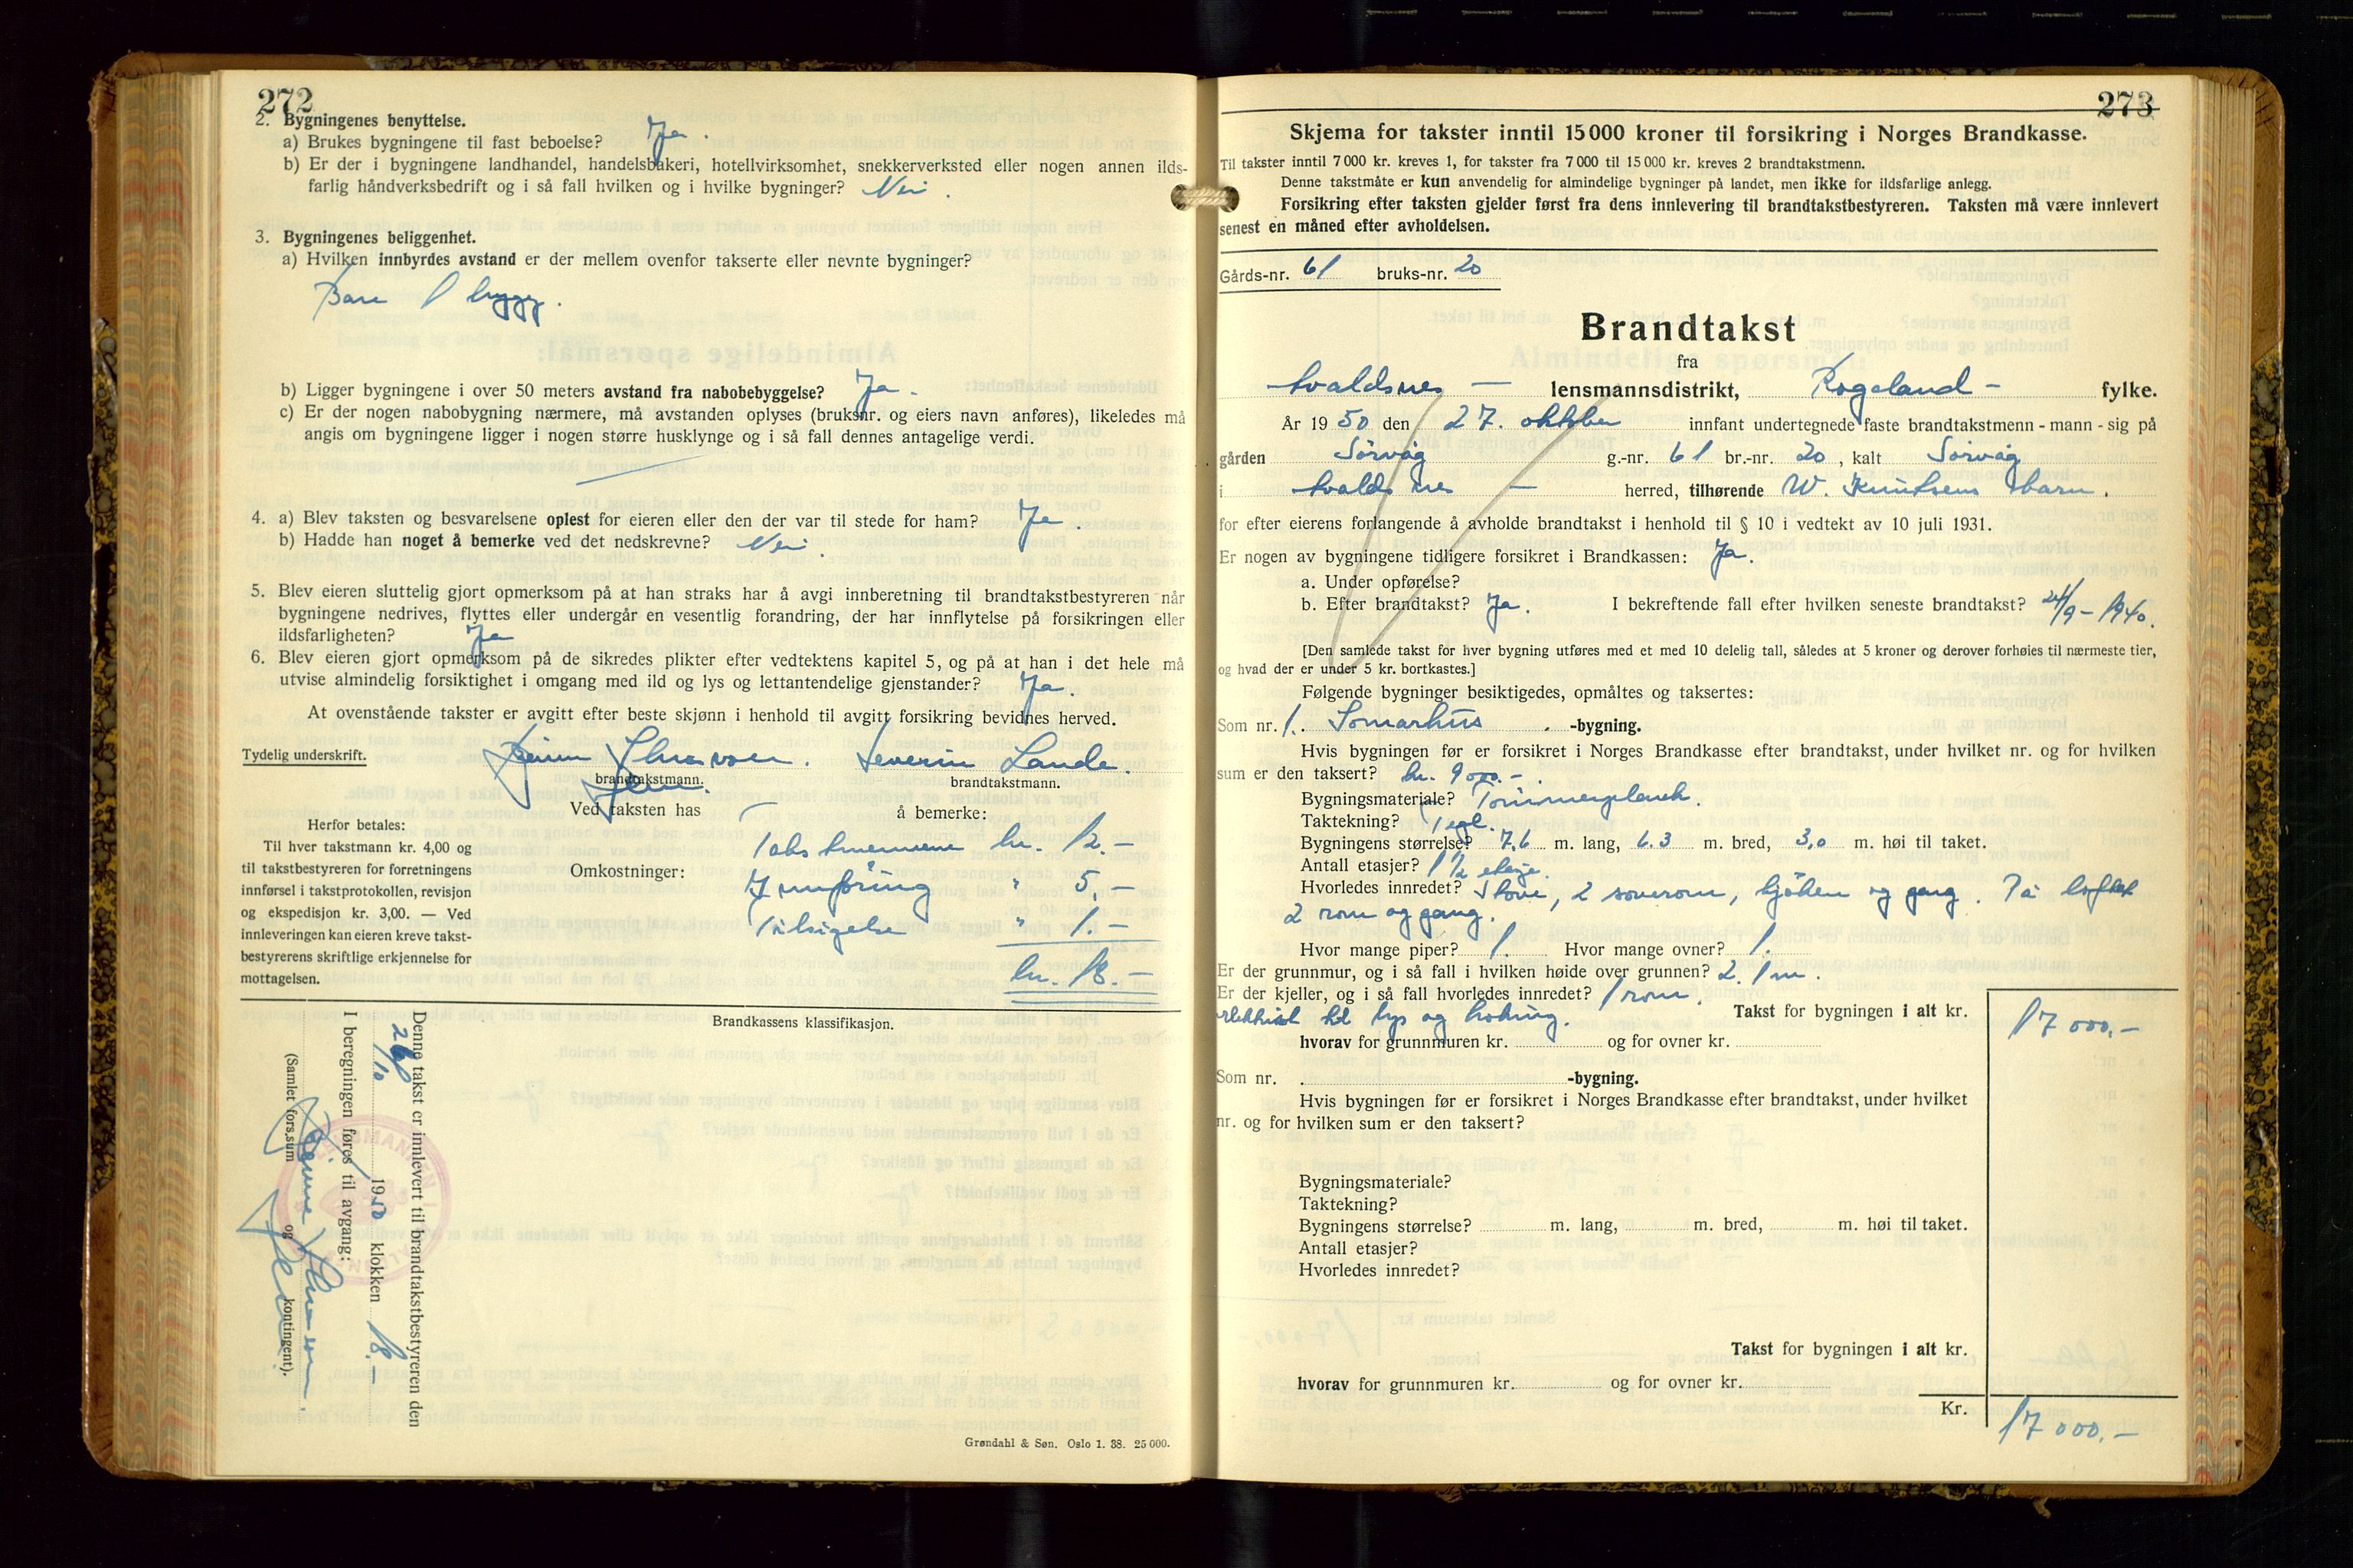 272
2. Bygningenes benyttelse.
a) Brukes bygningene til fast beboelse? Ja.
b) Er der i bygningene landhandel, handelsbakeri, hotellvirksomhet, snekkerverksted eller nogen annen ilds-
farlig håndverksbedrift og i så fall hvilken og i hvilke bygninger? Nei.
3. Bygningenes beliggenhet.
a) Hvilken innbyrdes avstand er der mellem ovenfor takserte eller nevnte bygninger?
Bare 1 bygg.
b) Ligger bygningene i over 50 meters avstand fra nabobebyggelse? Ja.
c) Er der nogen nabobygning nærmere, må avstanden oplyses (bruksnr. og eiers navn anføres), likeledes må
angis om bygningene ligger i nogen større husklynge og i så fall dennes antagelige verdi.
4. a) Blev taksten og besvarelsene oplest for eieren eller den der var til stede for ham? Ja
b) Hadde han noget å bemerke ved det nedskrevne? Nei.
5. Blev eieren sluttelig gjort opmerksom på at han straks har å avgi innberetning til brandtakstbestyreren når
bygningene nedrives, flyttes eller undergår en vesentlig forandring, der har innflytelse på forsikringen eller
ildsfarligheten? Ja
6. Blev eieren gjort opmerksom på de sikredes plikter efter vedtektens kapitel 5, og på at han i det hele må
utvise almindelig forsiktighet i omgang med ild og lys og lettantendelige gjenstander? Ja.
At ovenstående takster er avgitt efter beste skjønn i henhold til avgitt forsikring bevidnes herved.
Tydelig underskrift. Severin Lande.
brandtakstmann. brandtakstmann.
Ved taksten has å bemerke:
Herfor betales:
Til hver takstmann kr. 4,00 og
til takstbestyreren for forretningens
innførsel i takstprotokollen, revisjon
og ekspedisjon kr. 3,00. — Ved
innleveringen kan eieren kreve takst-
bestyrerens skriftlige erkjennelse for
mottagelsen.
Omkostninger:
Takstmennene kr. 12.-
Innföring " 5.-
Tilsigelse " 1.-
kr. 18.-
Brandkassens klassifikasjon.
Denne takst er innlevert til brandtakstbestyreren den
/10 1950 klokken 18.-
I beregningen føres til avgang:
(Samlet fors.sum og kontingent).
Grøndahl & Søn. Oslo 1. 38. 25 000.
273
Skjema for takster inntil 15 000 kroner til forsikring i Norges Brandkasse.
Til takster inntil 7 000 kr. kreves 1, for takster fra 7 000 til 15 000 kr. kreves 2 brandtakstmenn.
Denne takstmåte er kun anvendelig for almindelige bygninger på landet, men ikke for ildsfarlige anlegg.
Forsikring efter taksten gjelder først fra dens innlevering til brandtakstbestyreren. Taksten må være innlevert
senest en måned efter avholdelsen.
Gårds-nr. 61 bruks-nr. 20
Brandtakst
fra
Avaldsnes — lensmannsdistrikt, Rogaland - fylke.
År 1950 den 27. oktober innfant undertegnede faste brandtakstmenn - mann - sig på
gården Sörvåg g.-nr. 61 br.-nr. 20, kalt Sörvåg
i Avaldsnes — herred, tilhørende W. Knutsens barn.
for efter eierens forlangende å avholde brandtakst i henhold til § 10 i vedtekt av 10 juli 1931.
Er nogen av bygningene tidligere forsikret i Brandkassen: Ja.
a. Under opførelse?
b. Efter brandtakst? Ja. I bekreftende fall efter hvilken seneste brandtakst? 24/9 - 1940.
[Den samlede takst for hver bygning utføres med et med 10 delelig tall, således at 5 kroner og derover forhøies til nærmeste tier,
og hvad der er under 5 kr. bortkastes.]
Følgende bygninger besiktigedes, opmåltes og taksertes:
Som nr. 1. Somarhus -bygning.
Hvis bygningen før er forsikret i Norges Brandkasse efter brandtakst, under hvilket nr. og for hvilken
sum er den taksert? kr. 9000.-.
Bygningsmateriale? Tömmerplank.
Taktekning? Tegl.
Bygningens størrelse? 7,6 m. lang, 6.3 m. bred, 3,0 m. høi til taket.
Antall etasjer? 1 1/2 etasje.
Hvorledes innredet? Stove, 2 soverom, kjöken og gang. På loftet
2 rom og gang.
Hvor mange piper? 1. Hvor mange ovner? 1.
Er der grunnmur, og i så fall i hvilken høide over grunnen? 2.1 m.
Er der kjeller, og i så fall hvorledes innredet? 1 rom.
elektrisk til lys og koking. Takst for bygningen i alt kr. 17 000.-
hvorav for grunnmuren kr. og for ovner kr.
Som nr. -bygning.
Hvis bygningen før er forsikret i Norges Brandkasse efter brandtakst, under hvilket
nr. og for hvilken sum er den taksert?
Bygningsmateriale?
Taktekning?
Bygningens størrelse? m. lang, m. bred, m. høi til taket.
Antall etasjer?
Hvorledes innredet?
Takst for bygningen i alt kr.
hvorav for grunnmuren kr. og for ovner kr.
Kr. 17 000.-